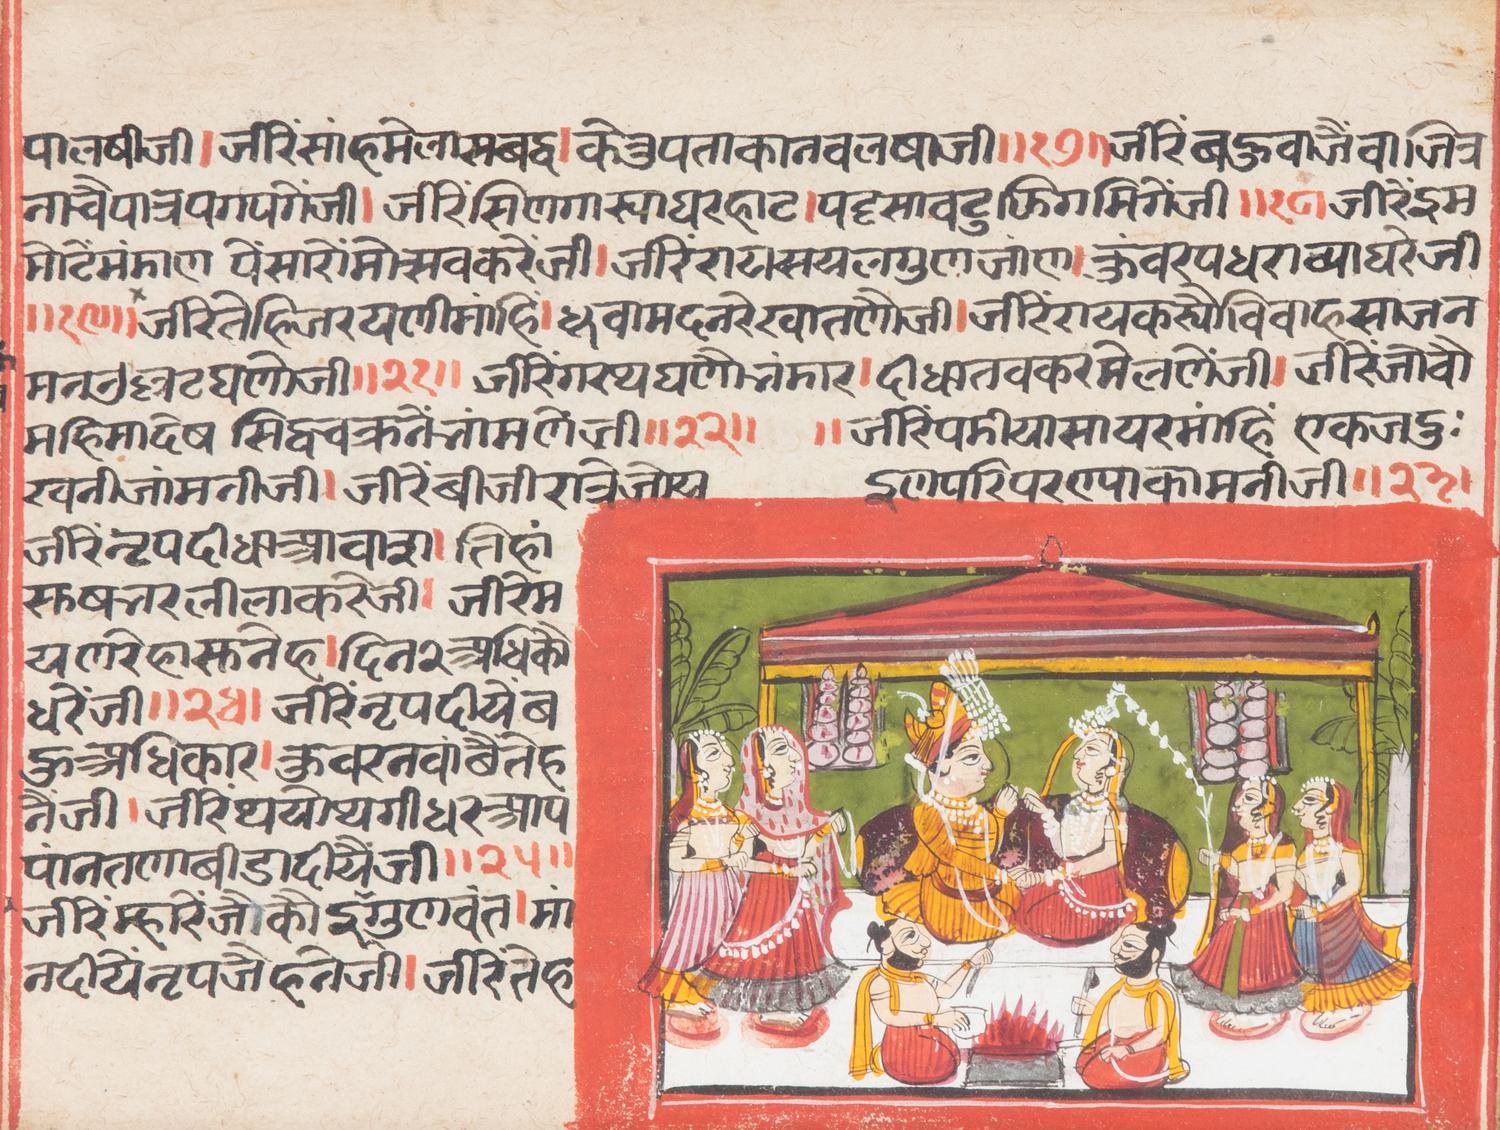 पालषीजी। जीरेंसांहमेलासबद्द। केतुपताकानवलषाजी॥१७॥जीरेंबहुवाजैंवाजित्र
नाचैपात्रपगपगेंजी। जीरेंसिणगास्याघरहाट। पटृसावटुफिगमिगेंजी॥१८॥जीरेंइम
मोटेंमंडाण पेंसारोंमोत्सवकरेंजी। जीरेंरायसयलगुणजांण। कुंवरपधराव्याघरेजी
॥१९॥जीरेतेहिजरयणीमांहिं। धूवामदनरेखातणौजी। जीरेंरायकस्यौविवाहसाजन
मनउछटघणौजी॥२१॥ जीरेंगरथघणौभंमार। दीधातवकरमेलणेंजी। जीरेंजोवौ
महिमादेष सिद्धचक्रनेंनांमणेंजी॥२२॥ ॥जीरेंपमीयासायरमांहिं एकजदुः
खनीजांमनीजी। जीरेंबीजीरात्रेजोय इणपरिपरण्याकांमनीजी॥२३॥
जीरेंनृपदीधाआवास। तिहां
सुषभरलीलाकरेजी। जीरेम
यणरेहासुनेह। दिन२अधिकौ
धरेंजी॥२४॥ जीरेंनृपदीयेंब
हुअधिकार। कुवरनवांबैंतेह
नैजी। जीरेंथयोथगीधरआप
पांनतणाबीडादीयैंजी॥२५॥
जीरेंम्हारेंजोकौइंगुणवंत। मां
नदीयेंनृपजेहनेंजी। जीरेंतेह